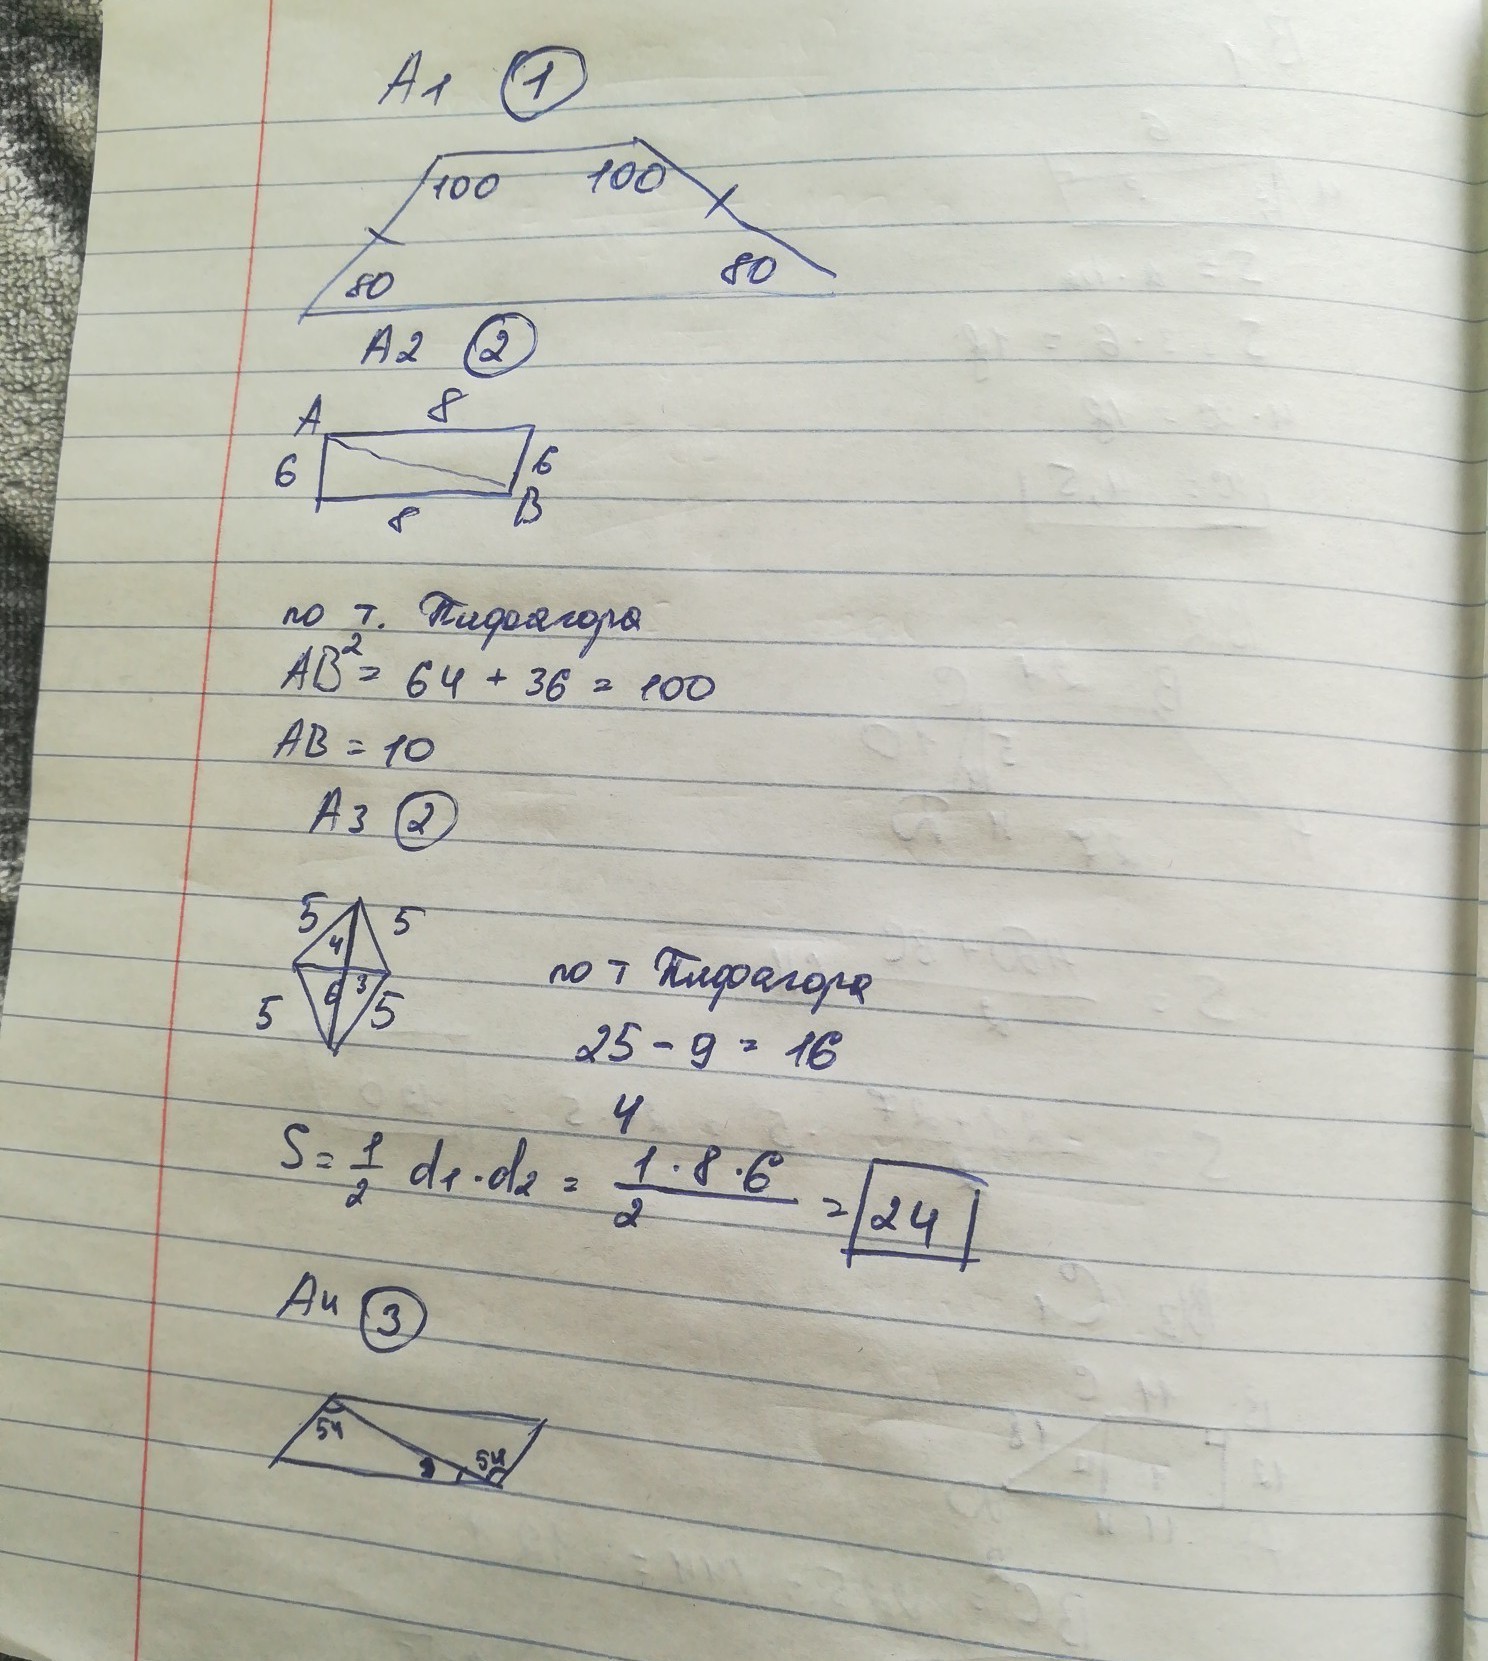 A1 1
100 100
80 80
A2 2
A 8
6 6
8 B
по т. Пифагора
AB² = 64 + 36 = 100
AB = 10
A3 2
5 5
4
6 3
5 5
по т Пифагора
25 - 9 = 16
4
S = 1/2 d1 · d2 = 1 · 8 · 6 / 2 = 24
A4 3
54
54